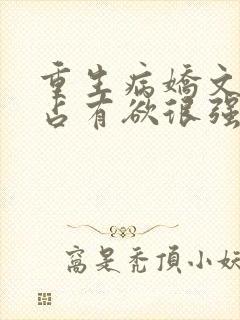 重生病嬌文
占有欲很强
窩是秃頂小妖